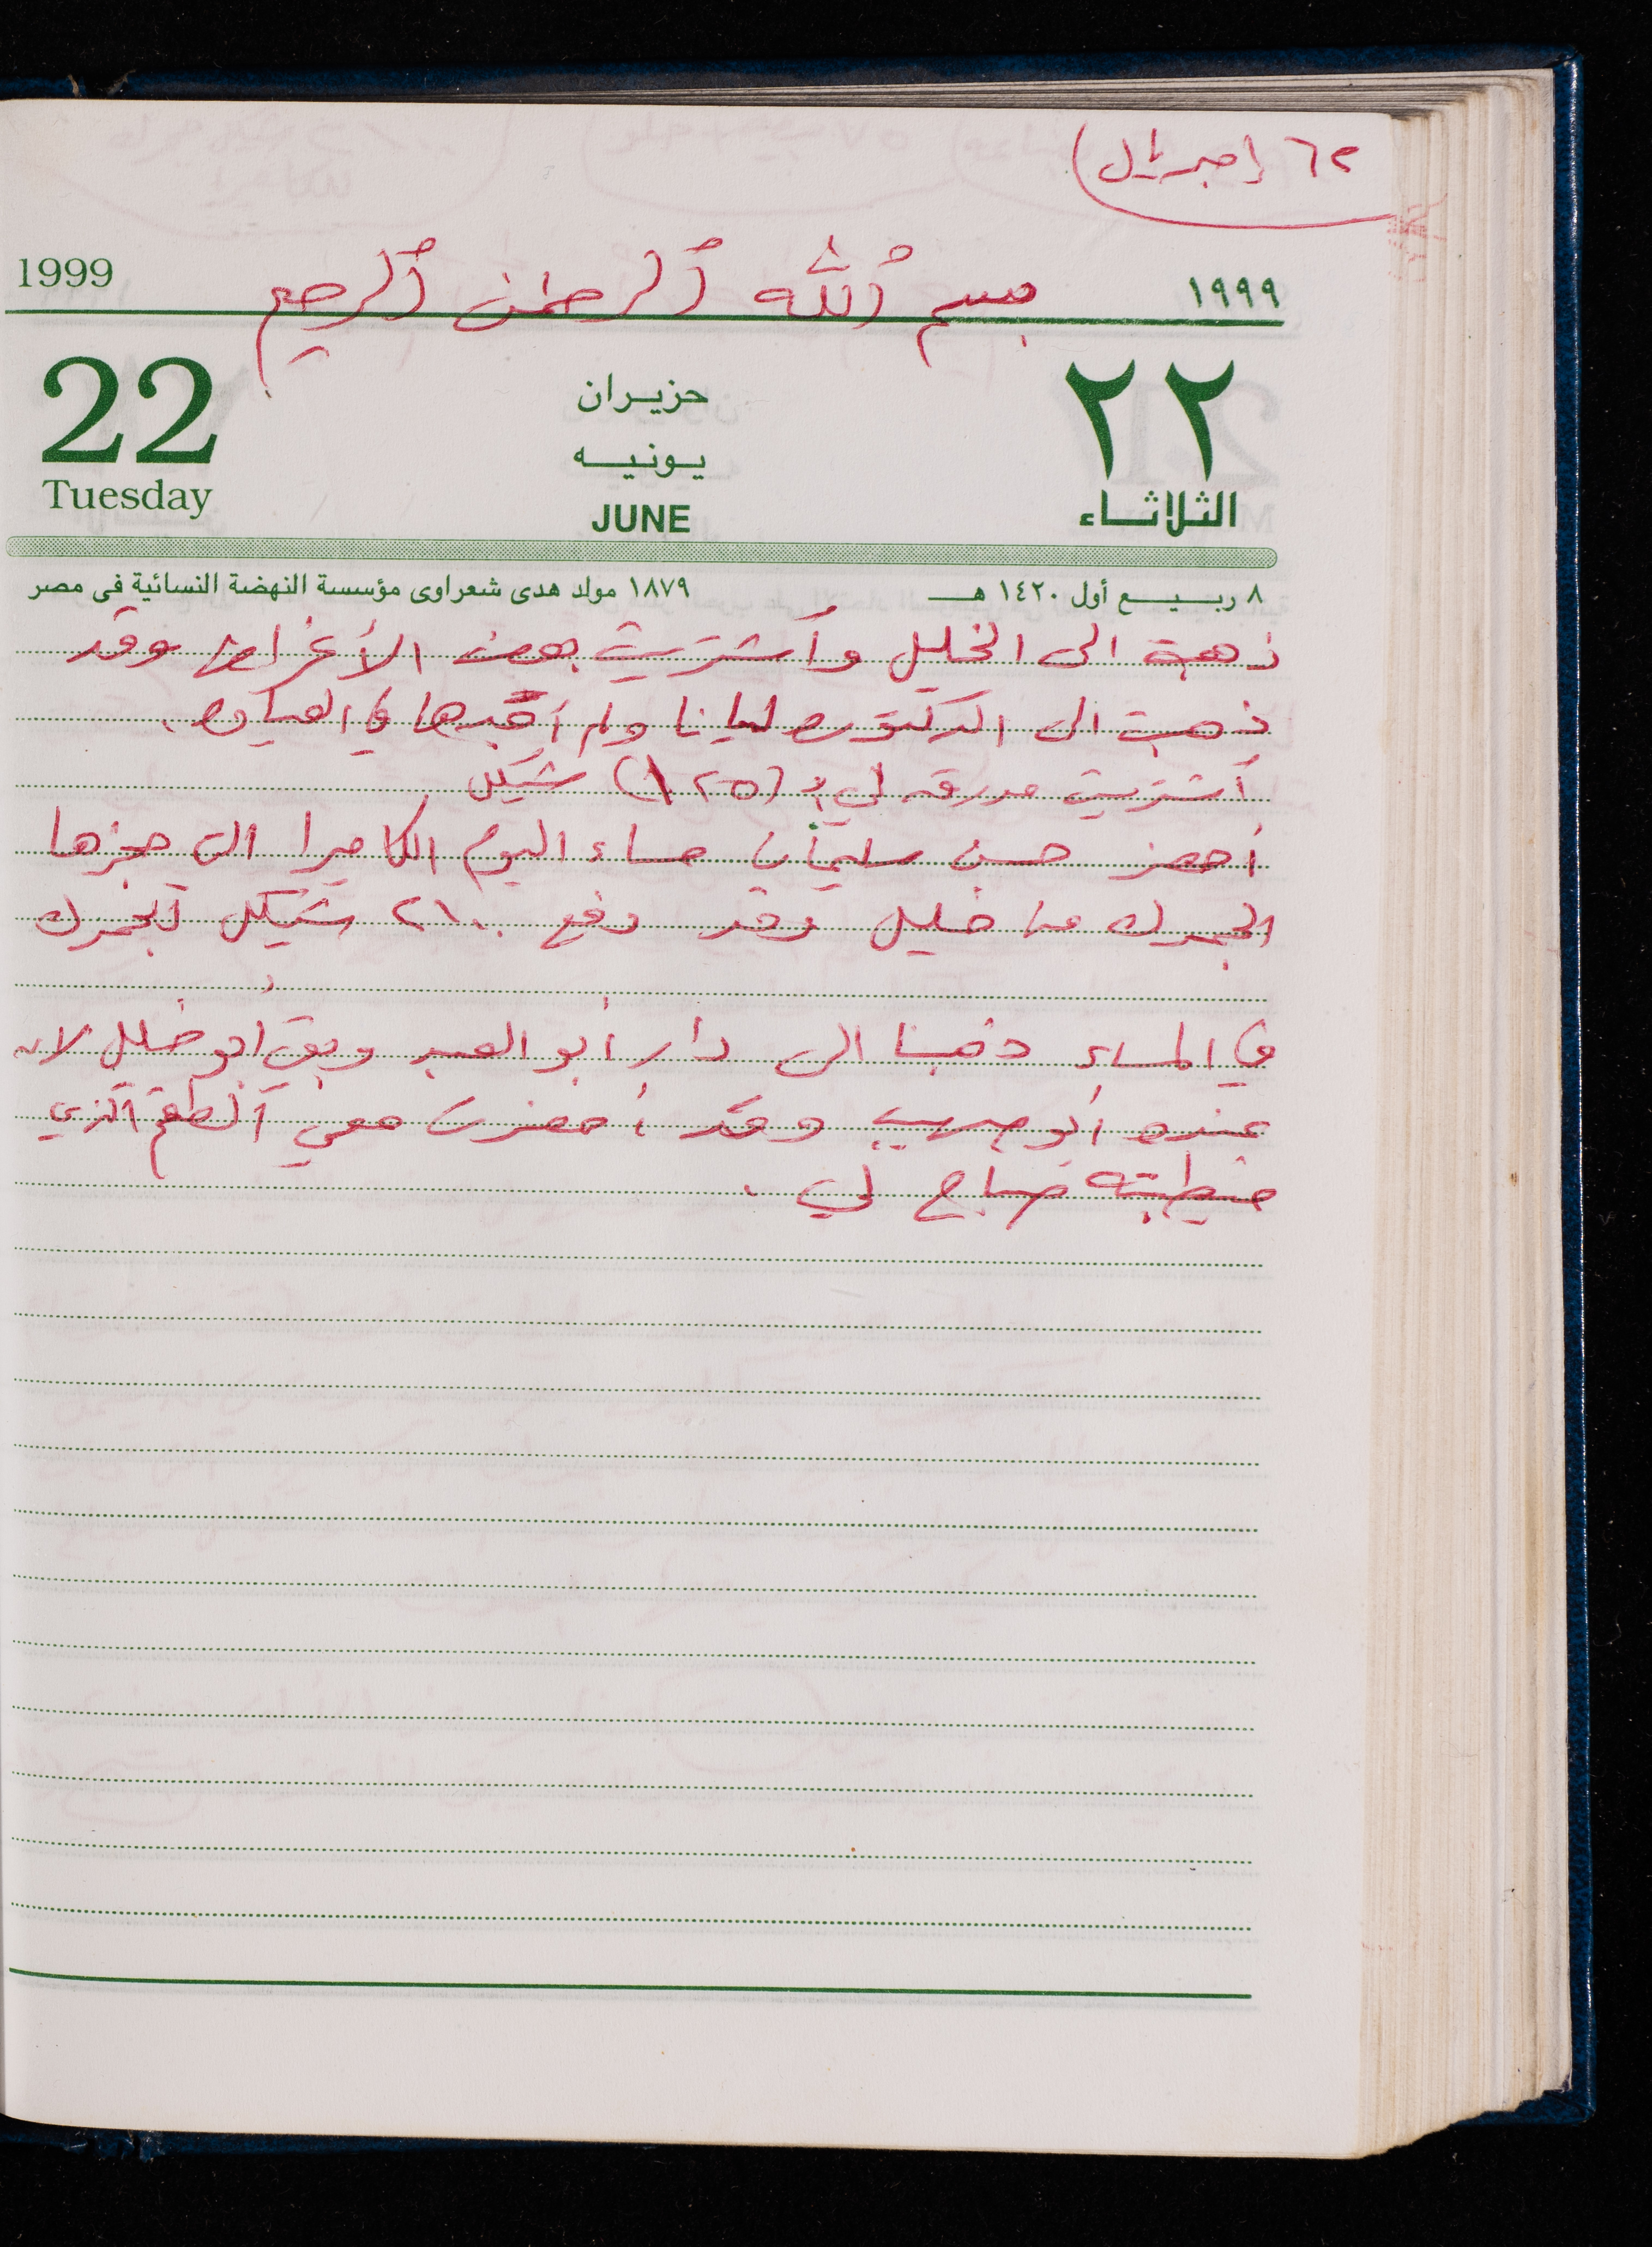 ٦٢ (جبريل)
1999 بسم ٱلله ٱلرحمٰن ٱلرحيم ١٩٩٩
22 حزيران ٢٢
يونيه
Tuesday JUNE الثلاثاء
٨ ربيع أول ١٤٢٠ هـ ١٨٧٩ مولد هدى شعراوى مؤسسة النهضة النسائية فى مصر
ذهبت الى الخليل وٱشتريت بعض الأغراض وقد
ذهبت الى الدكتوره ليانا ولم أجدها في العياده.
ٱشتريت لي بـ (١٢٥) شيكل
أحضر حسن سليمان مساء اليوم الكاميرا التي حجزها
الجمرك من خليل وقد دفع ٢١٠٠ شيكل ٱلجمرك
في المساء ذهبنا الى دار أبو العبد وبقي أبو خليل لان
عنده أبو وقد أحضرت معي ٱلطقم ٱلذي
خيطته صباح لي.